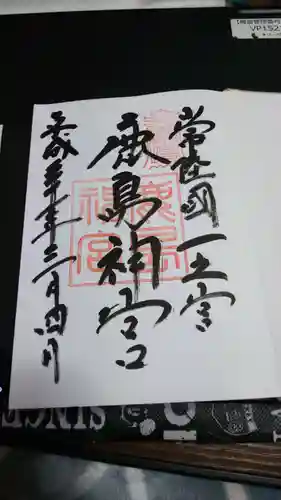 常陸國一之宮
鹿島神宮
平成 年三月四日
鹿島
神宮
VP152